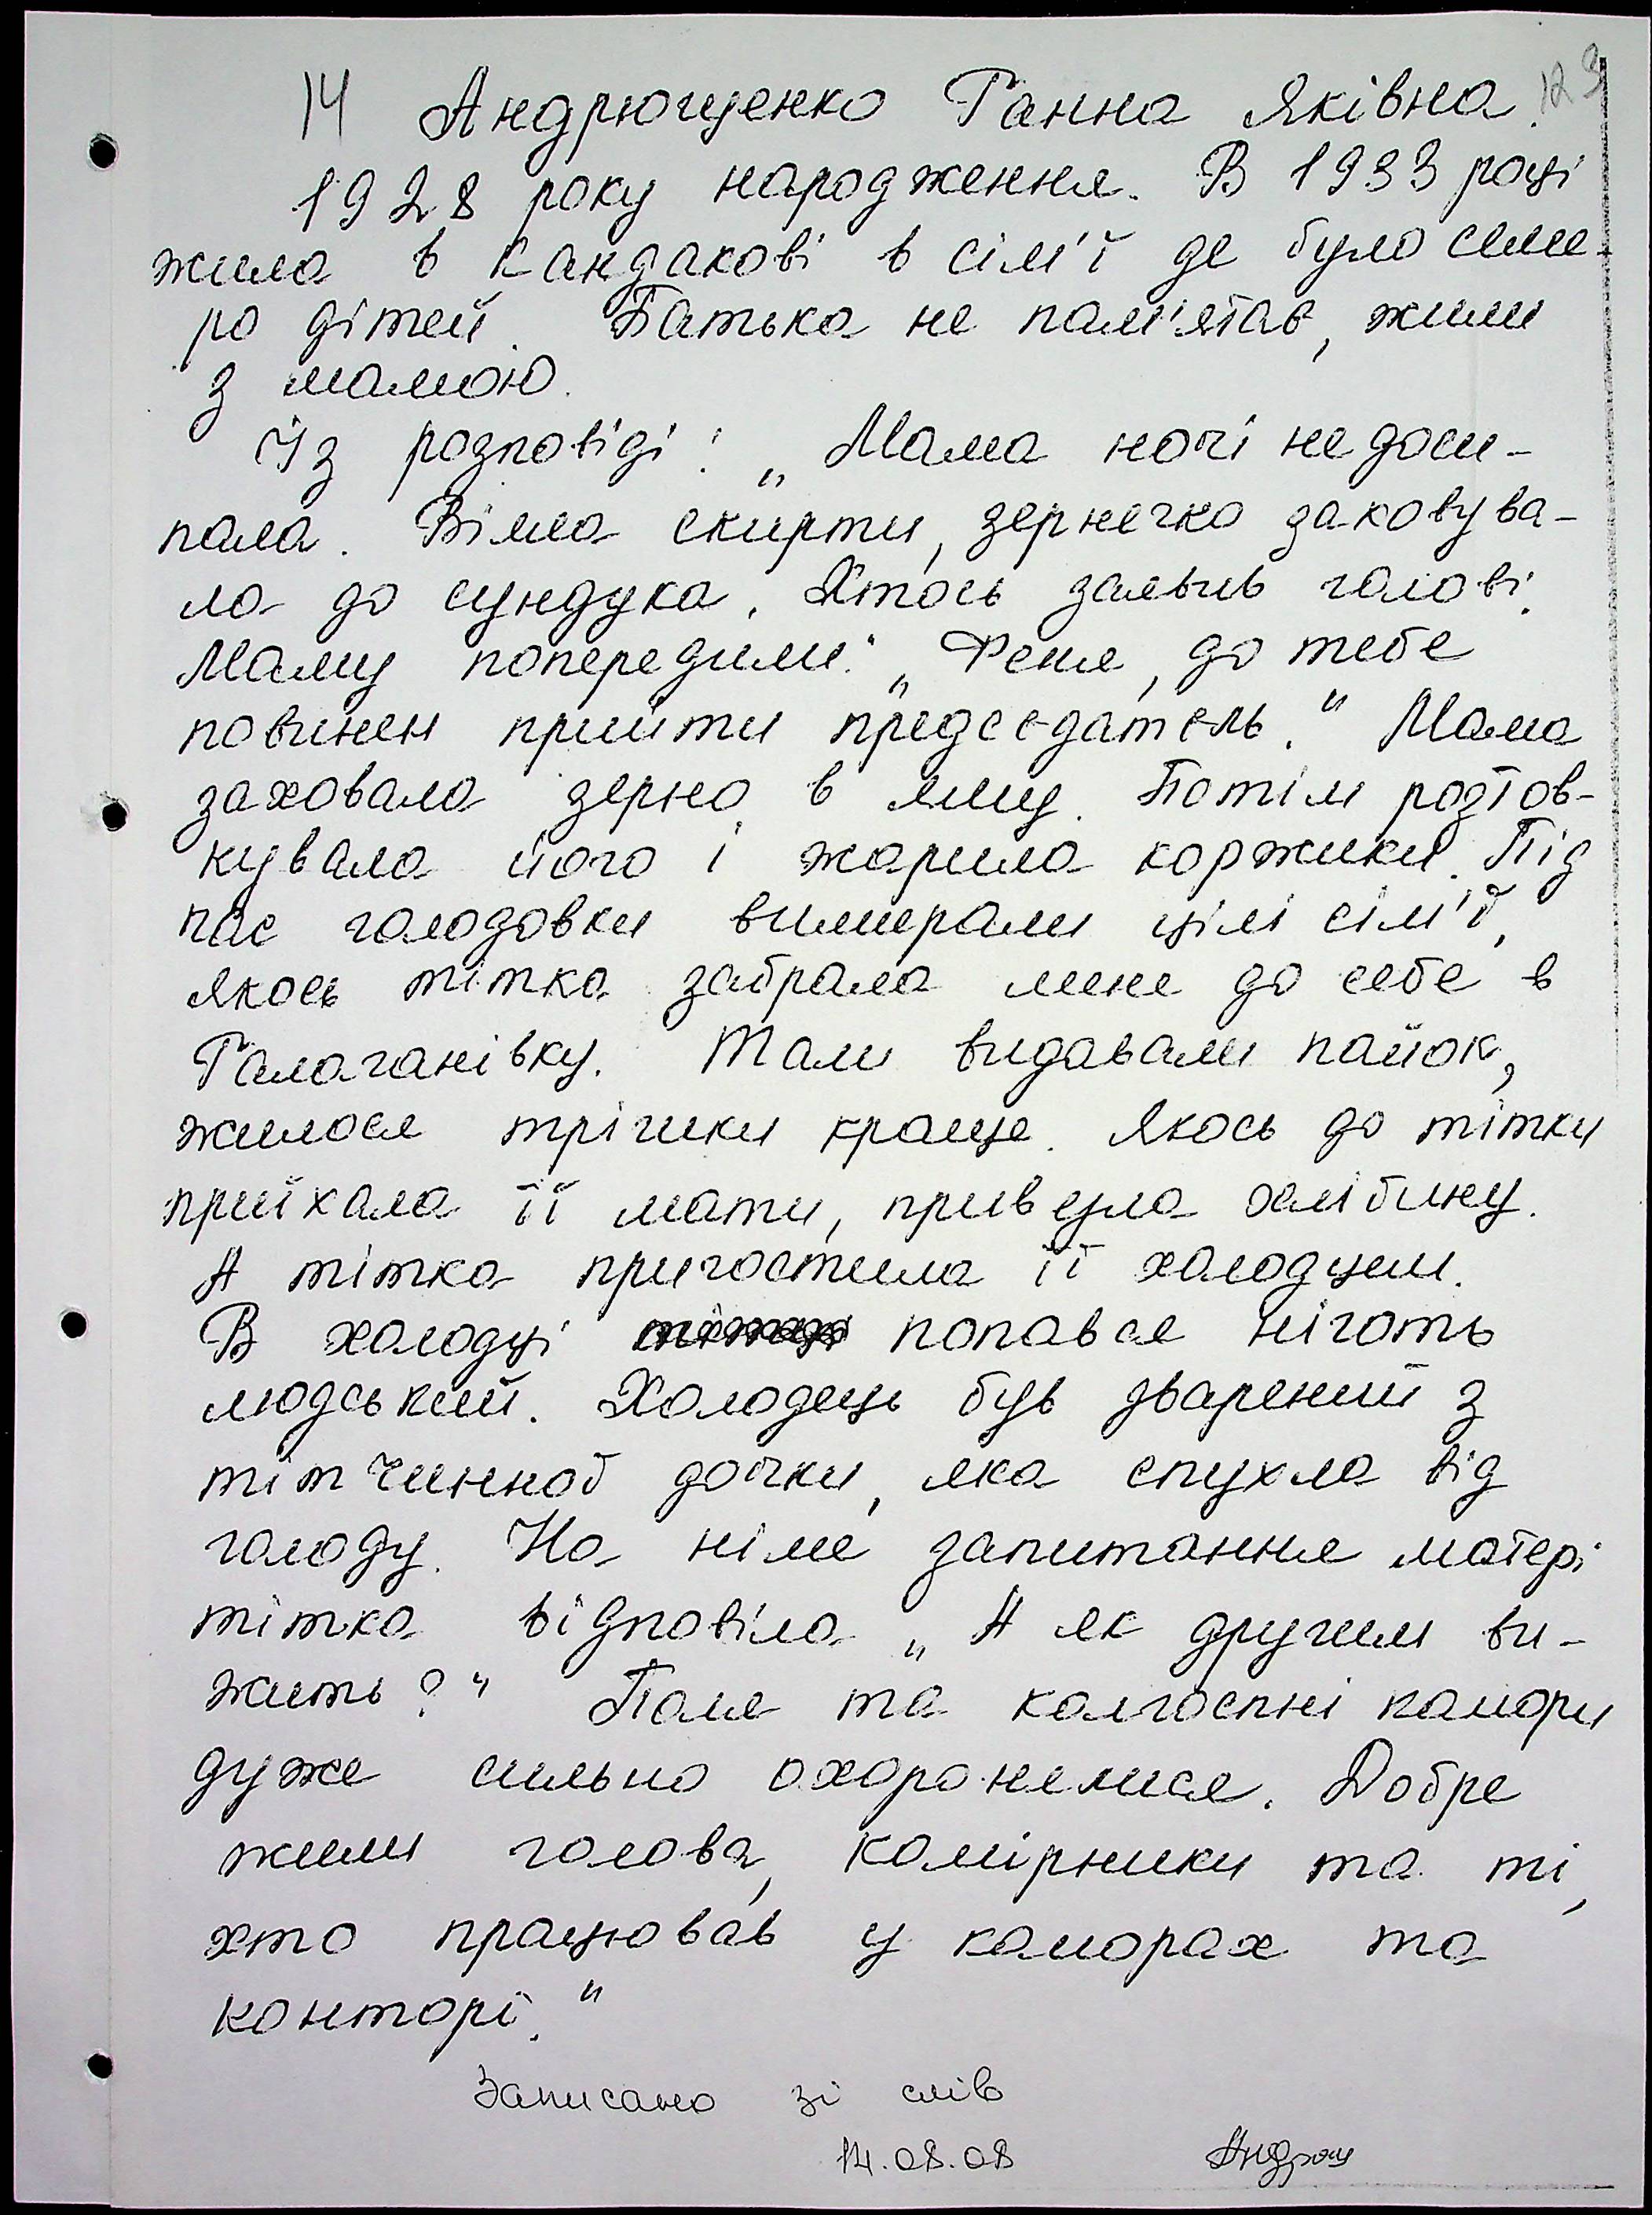 14 Андрющенко Ганна Яківна. 129
1928 року народження. В 1933 році
жила в Кандакові в сім'ї де було семе-
ро дітей. Батька не пам'ятає, жили
з мамою.
Із розповіді: „Мама ночі не доси-
пала. Віяла скирти, зернечко заховува-
ла до сундука. Хтось заявив голові.
Маму попередили: „Феня, до тебе
повинен прийти председатель." Мама
заховала зерно в яму. Потім розтов-
кувала його і жарила коржики. Під
час голодовки вимерали цілі сім'ї,
якось тітка забрала мене до себе в
Галаганівку. Там видавали пайок,
жилося трішки краще. Якось до тітки
приїхала її мати, привезла хлібину.
А тітка пригостила її холодцем.
В холодці попався ніготь
людський. Холодець був зварений з
тітчинної дочки, яка спухла від
голоду. На німе запитання матері
тітка відповіла „А як другим ви-
жить?" Поля та колгоспні камори
дуже сильно охоронялися. Добре
жили голова, комірники та ті,
хто працював у каморах та
конторі."
Записано зі слів
14.08.08 Андрющ